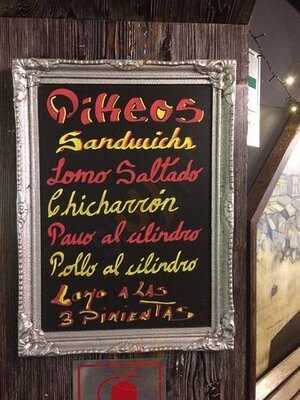 Pikeos
Sandwichs
Lomo Saltado
Chicharrón
Pavo al cilindro
Pollo al cilindro
Lomo A LAS
3 PIMIENTAS